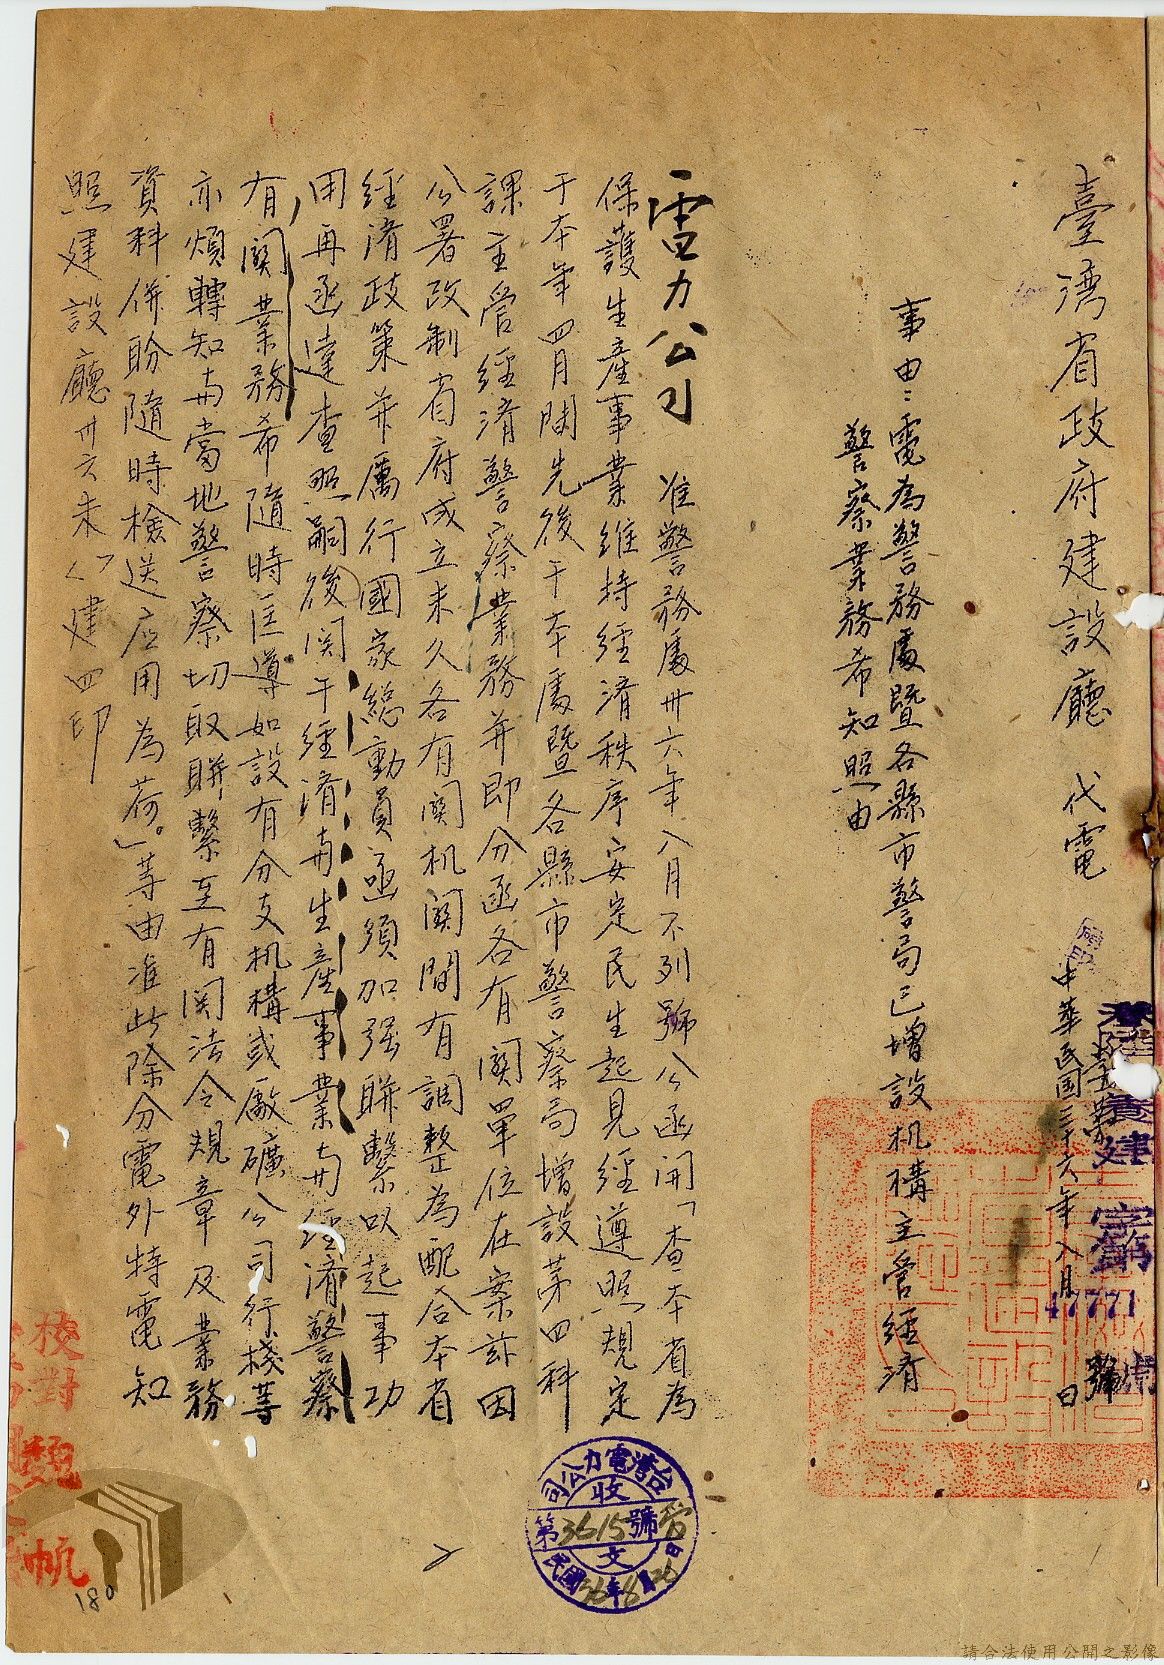 臺灣省政府建設廳 代電
中華民國三十六年八月 日
47771
號
事由：電為警務處暨各縣市警局已增設机構主管經濟
警察業務希知照由
電力公司 准警務處卅六年八月不列號公函開「查本省為
保護生產事業維持經濟秩序安定民生起見經遵照規定
于本年四月開先後于本處暨各縣市警察局增設第四科
課主管經濟警察業務并即分函各有関單位在案茲因
公署改制省府成立未久各有関机関間有調整為配合本省
經濟政策并厲行國家總動員亟須加强聯繫以起事功
用再函達查照嗣後関于經濟与生產事業与經濟警察
有関業務希隨時匡導如設有分支机構或廠礦公司行棧等
亦煩轉知与當地警察切取聯繫至有関法令規章及業務
資料併盼隨時檢送应用為荷。」等由准此除分電外特電知
照建設廳卅六未 建四印
台灣電力公司
收
第3615號
文
民國36年8月26日
校對
180
請合法使用公開之影像